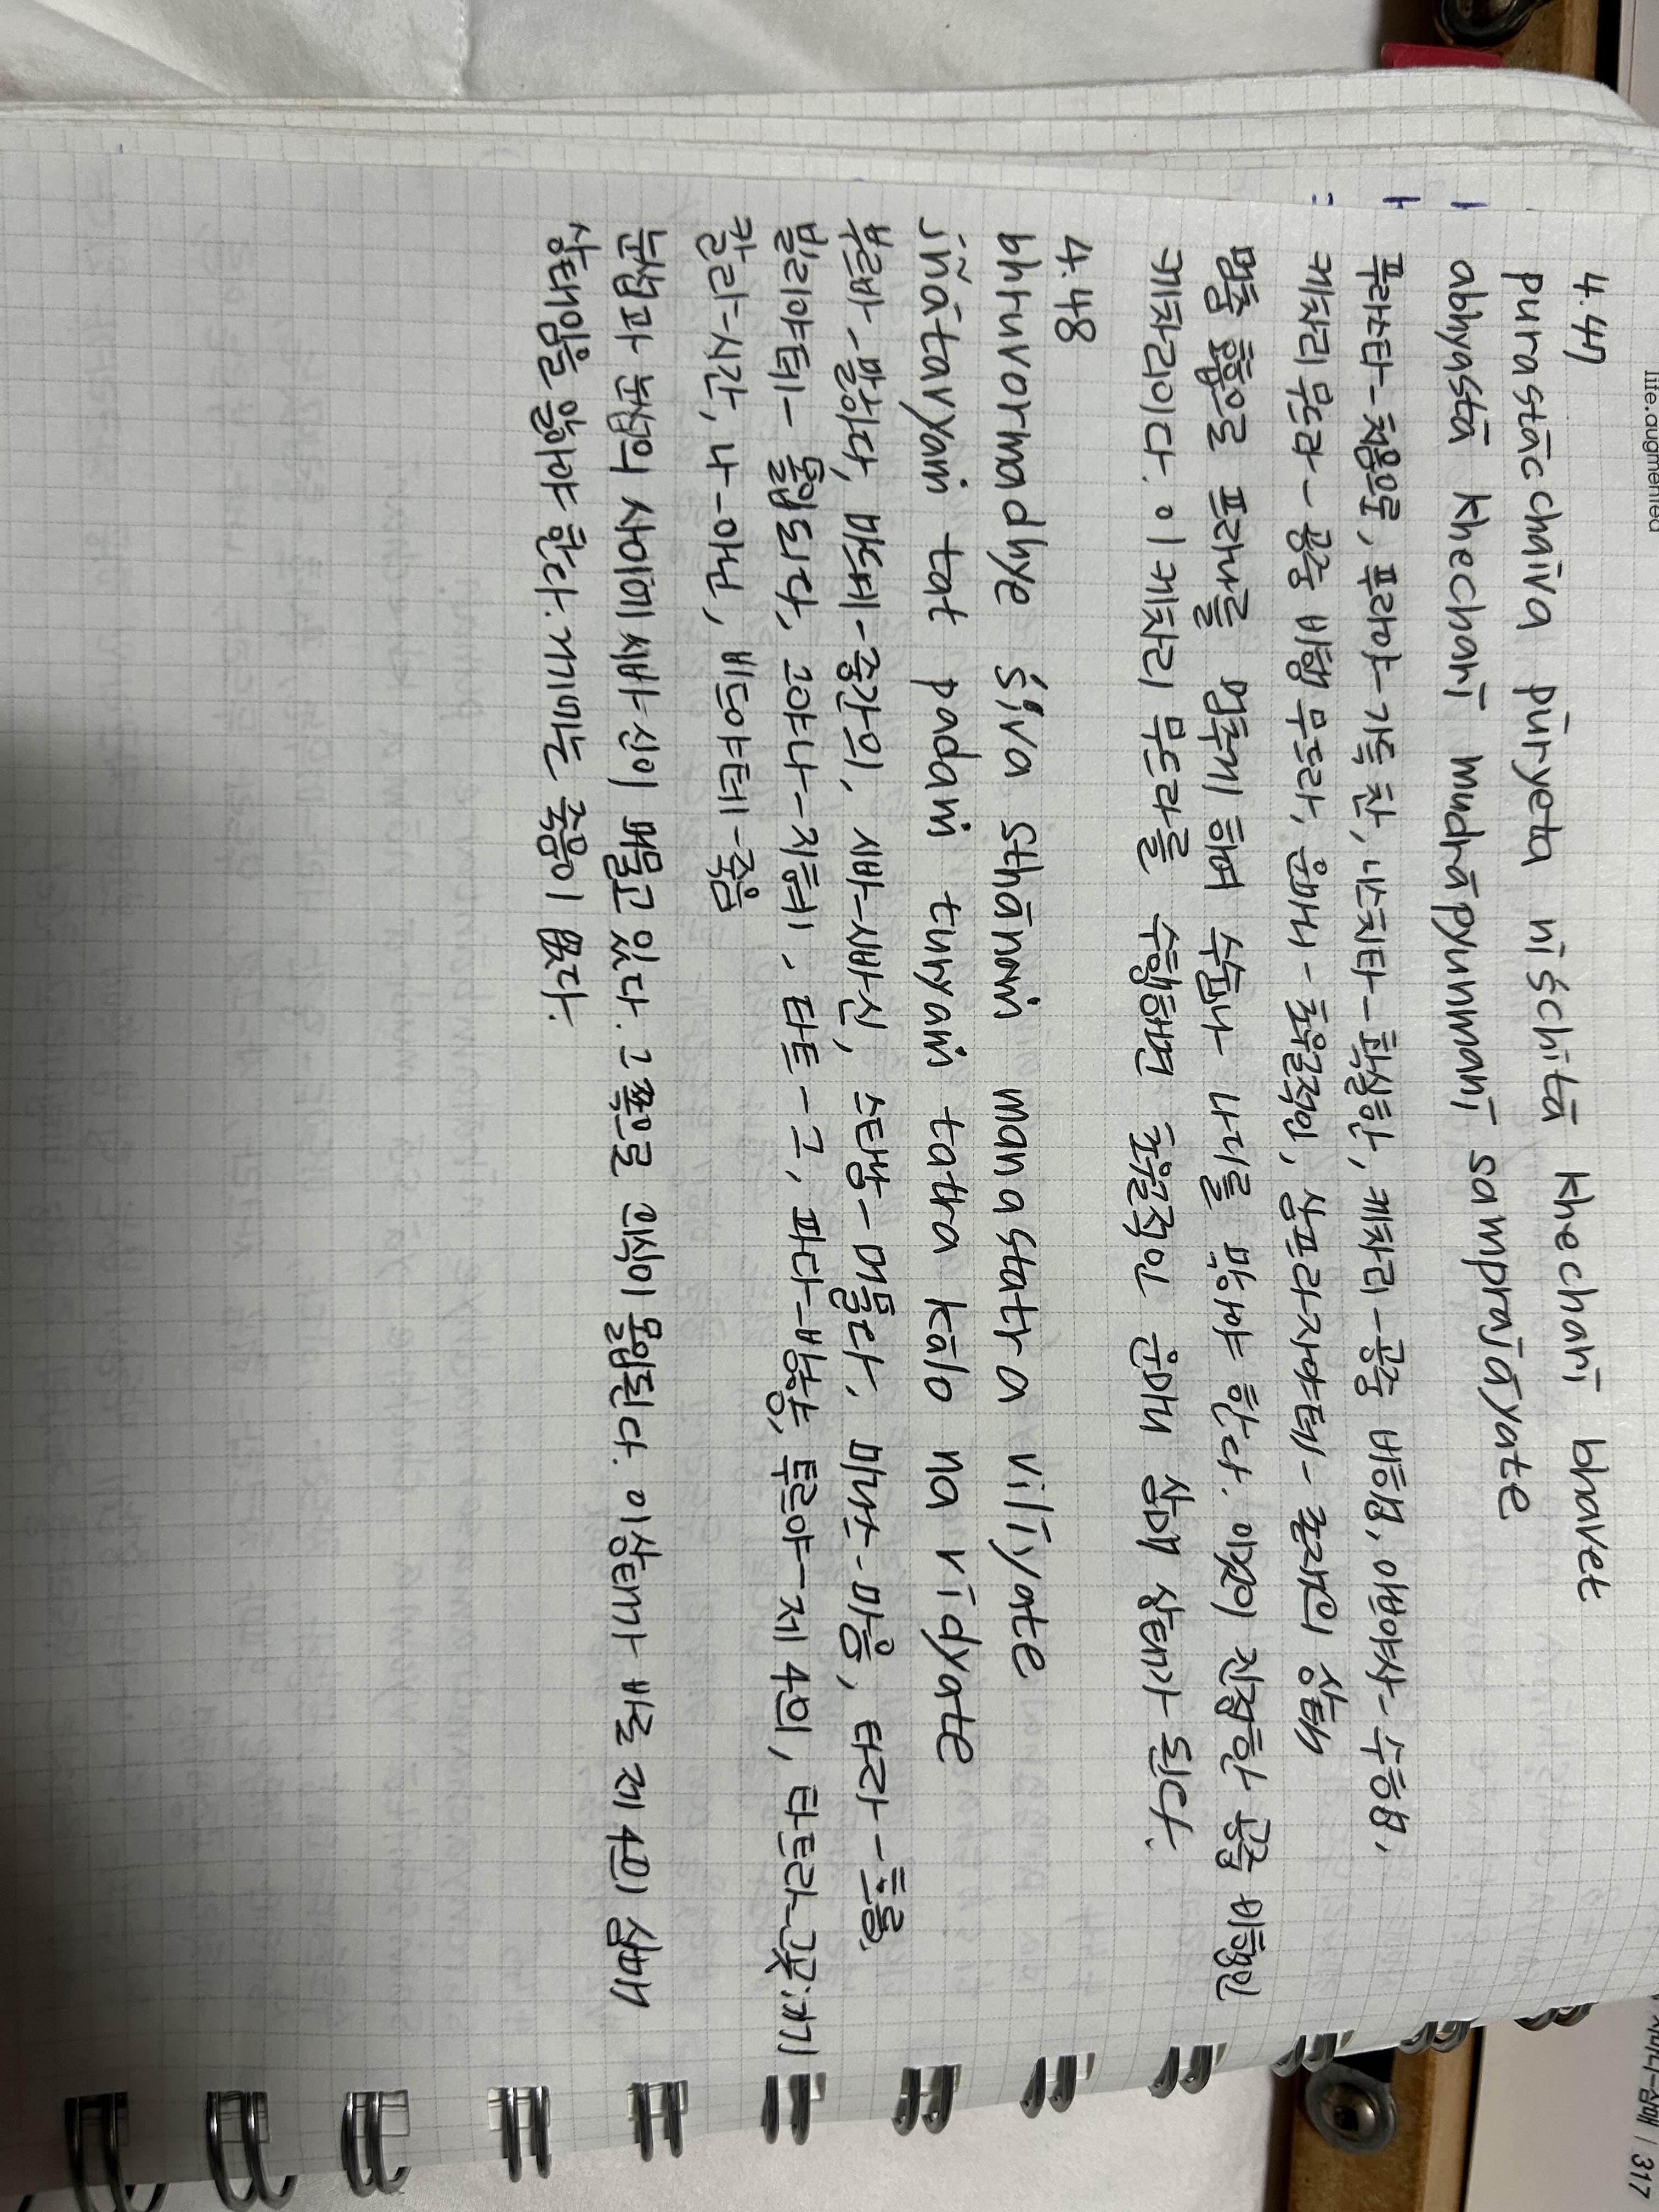 life.augmented
4.47
purastācchaiva pūryeta niśchitā khecharī bhavet
abhyastā khecharī mudrāpyunmanī samprajāyate
푸라스타-처음으로, 푸라야-가득 찬, 니스치타-확실한, 케차리-공중 비행, 아비야사-수행,
케차리 무드라-공중 비행 무드라, 운마니-초월적인, 삼프라자야테-존재의 상태
멈춤 호흡으로 프라나를 멈추게 하며 수슘나 나디를 막아야 한다. 이것이 진정한 공중 비행인
케차리이다. 이 케차리 무드라를 수행하면 초월적인 운마니 삼매 상태가 된다.
4.48
bhruvormadhye śiva sthānaṁ manastatra vilīyate
jñātavyaṁ tat padaṁ turyaṁ tatra kālo na vidyate
부르바-빨아다, 마드예-중간의, 시바-시바신, 스타남-머물다, 마나스-마음, 타라-흐름,
빌리야테-몰입되다, 그야나-지혜, 타트-그, 파다-방향, 투르야-제 4의, 타트라-그곳:거기
칼라-시간, 나-아닌, 비드야테-죽음
눈썹과 눈썹의 사이에 시바 신이 머물고 있다. 그쪽으로 의식이 몰입된다. 이 상태가 바로 제 4의 삼매
상태임을 알아야 한다. 거기에는 죽음이 없다.
삼매 | 317